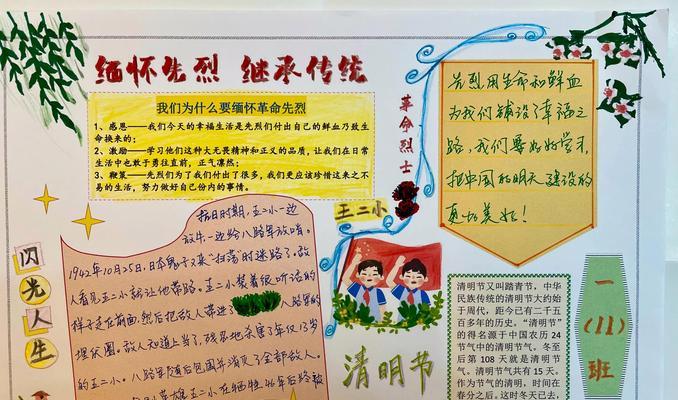 缅怀先烈 继承传统
我们为什么要缅怀革命先烈
1、感恩——我们今天的幸福生活是先烈们付出自己的鲜血乃致生
命换来的；
2、激励——学习他们这种大无畏精神和正义的品质，让我们在日常
生活中也敢于勇往直前，正气凛然；
3、鞭策——先烈们为了我们付出了很多，我们更应该珍惜这来之不
易的生活，努力做好自己份内的事情。
革命烈士
王二小
先烈用生命和鲜血
为我们铺设了幸福之
路，我们要好好学习，
把中国的明天建设的
更加美好！
闪光人生
抗日时期，王二小一边
放牛一边给八路军放哨。
1942年10月25日，日本鬼子又来"扫荡"时迷路了，敌
人看见王二小就让他带路。王二小装着很听话的
样子走在前面，然后把敌人带进了八路军的
埋伏圈。敌人知道上当了，残忍地杀害了年仅13岁
的王二小。八路军随后包围并消灭了全部敌人。
清明节
清明节又叫踏青节，中华
民族传统的清明节大约始
于周代，距今已有二千五
百多年的历史。"清明节"
的得名源于中国农历24
节气中的清明节气。冬至
后第108天就是清明节
气。清明节气共有15天。
作为节气的清明，时间在
春分之后。这时冬天已去，
一(11)班